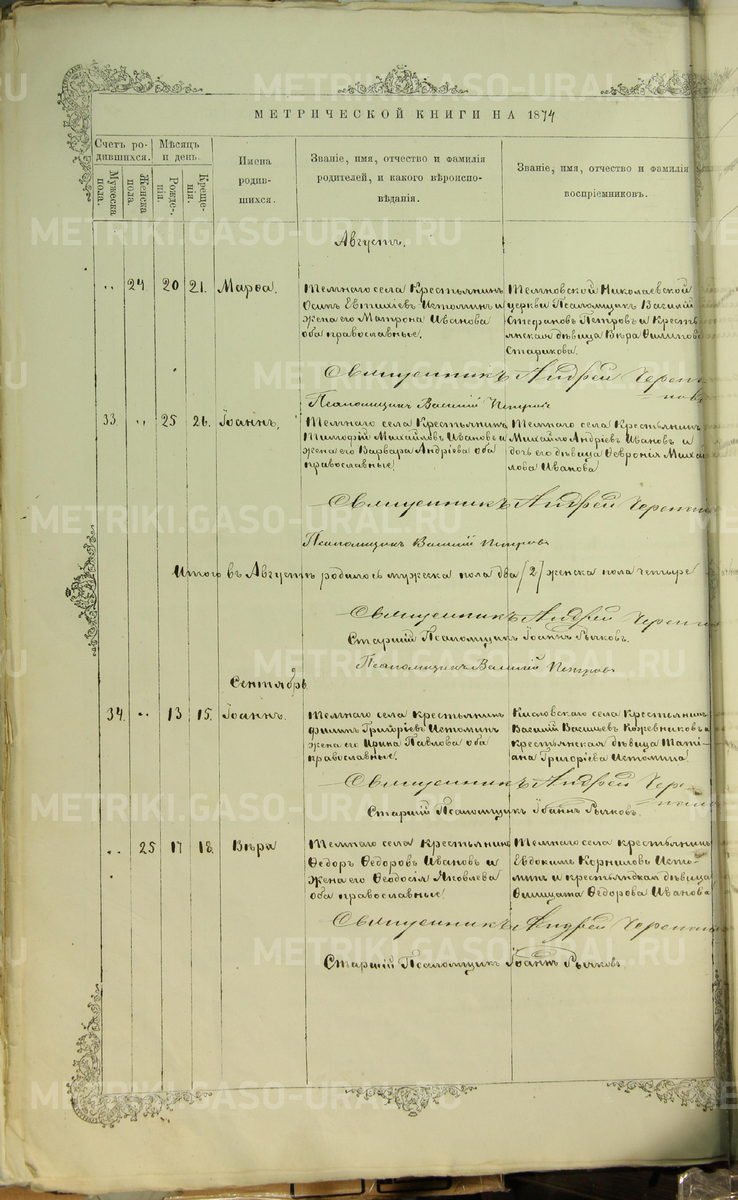 МЕТРИЧЕСКОЙ КНИГИ НА 1874
Счетъ ро-
дившихся.
Мужеска пола.
Женска пола.
Мѣсяцъ
и день.
Рожде-
нія.
Креще-
нія.
Имена
родив-
шихся.
Званіе, имя, отчество и фамилія
родителей, и какого вѣроиспо-
вѣданія.
Званіе, имя, отчество и фамилія
воспріемниковъ.
Августъ.
„ 24 20 21. Марѳа.
Темнаго села Крестьянинъ
Осипъ Евтихіевъ Истоминъ и
жена его Матрона Иванова
оба православные.
Темновской Николаевской
церкви Псаломщикъ Василій
Стефановъ Петровъ и Кресть-
янская дѣвица Вѣра Филипова
Старикова.
Священникъ Андрей
Псаломщикъ Василій Петровъ
33 „ 25 26. Іоаннъ.
Темнаго села Крестьянинъ
Тимофій Михайловъ Ивановъ и
жена его Варвара Андріева оба
православные.
Темнаго села Крестьянинъ
Михайло Андріевъ Ивановъ и
дочь его дѣвица Ѳевронія Михай
лова Иванова
Священникъ Андрей
Псаломщикъ Василій Петровъ
Итого въ Августѣ родилось мужеска пола два /2/ женска пола четыре
Священникъ Андрей
Старшій Псаломщикъ Іоаннъ Рычковъ.
Псаломщикъ Василій Петровъ
Сентябрь.
34. „ 13 15. Іоаннъ.
Темнаго села крестьянинъ
Филипъ Григоріевъ Истоминъ
жена его Ирина Павлова оба
православные.
Кисловскаго села Крестьянинъ
Василій Васильевъ Кожевниковъ и
крестьянская дѣвица Тати-
ана Григоріева Истомина
Священникъ Андрей
Старшій Псаломщикъ Іоаннъ Рычковъ.
„ 25 17 18. Вѣра
Темнаго села Крестьянинъ
Ѳедоръ Ѳедоровъ Ивановъ и
жена его Ѳеодосія Яковлева
оба православные
Темнаго села крестьянинъ
Евдокимъ Корниловъ Исто-
минъ и крестьянская дѣвица
Филицата Ѳедорова Иванова
Священникъ Андрей
Старшій Псаломщикъ Іоаннъ Рычковъ
METRIKI.GASO-URAL.RU